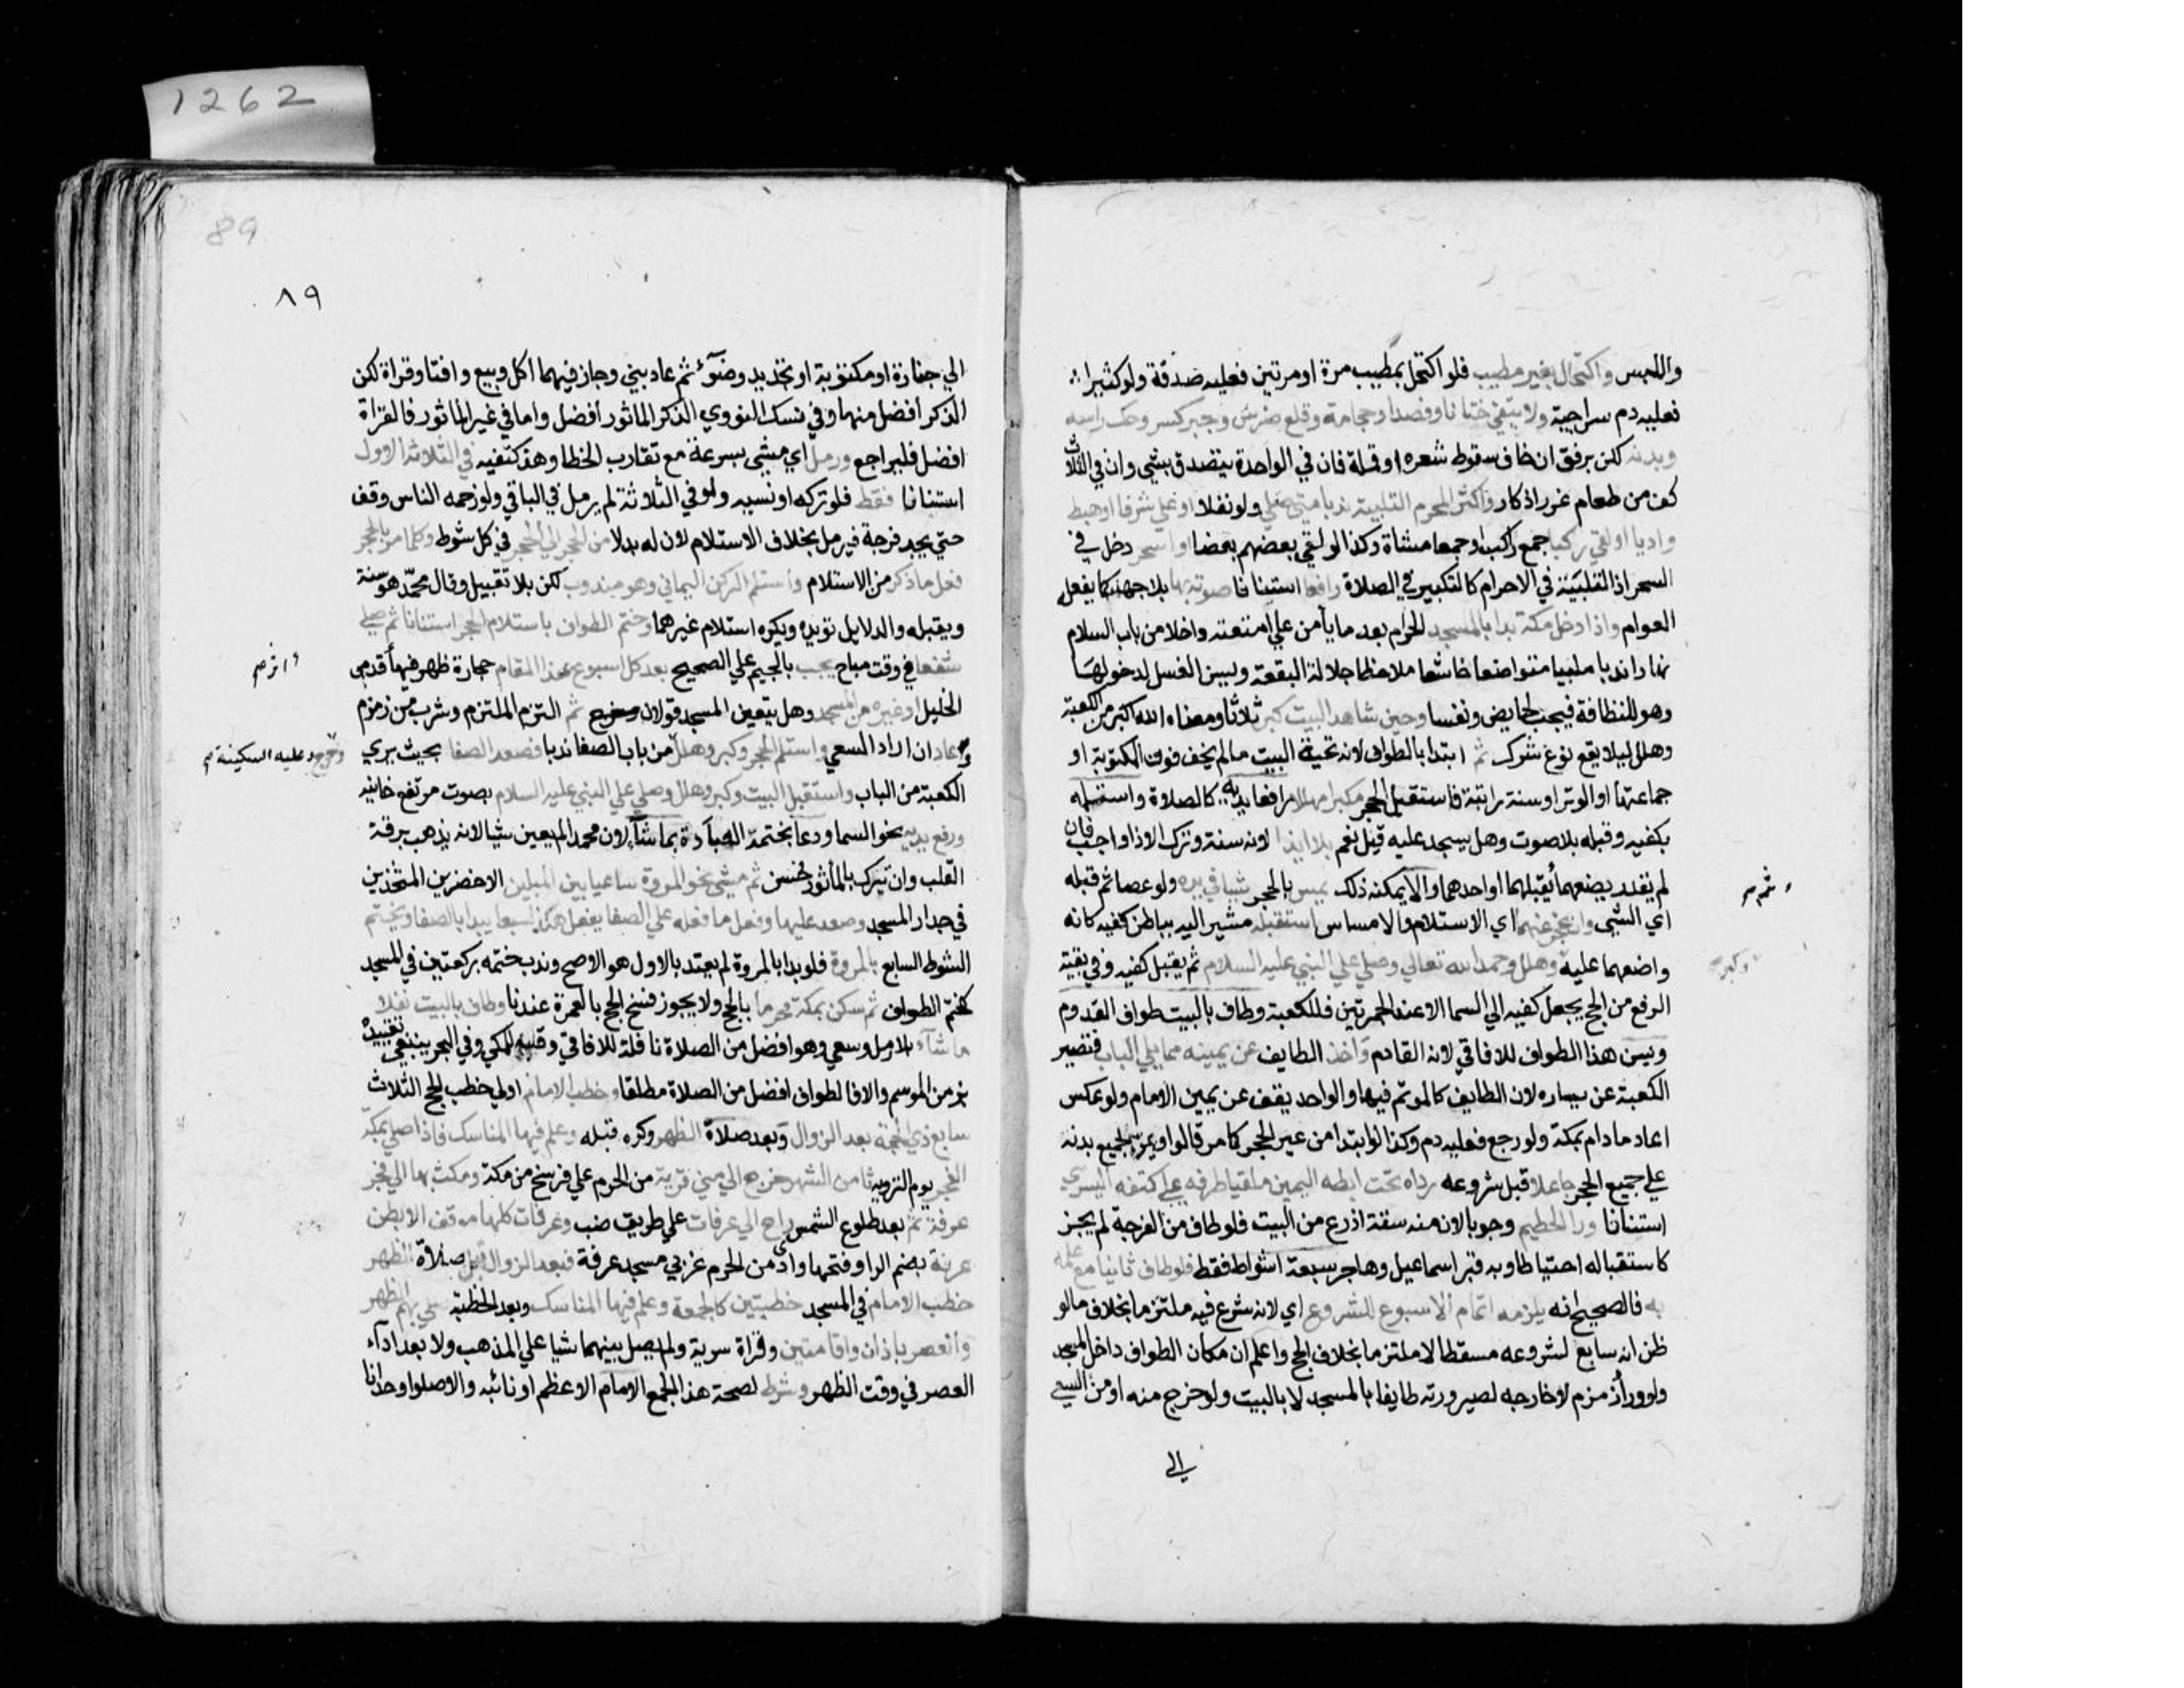 1262
واللبس واكتحال بغير مطيب فلو اكتحل بمطيب مرة او مرتين فعليه صدقة ولو كثيرا
فعليه دم سراجية ولا يتقي ختانا وفصدا وحجامة وقلع ضرس وجبر كسر وحك راسه
وبدنه لكن برفق ان خاف سقوط شعره او قملة فان في الواحدة يتصدق بشي وان في الثلاث
كف من طعام غرر اذكار واكثر المحرم التلبية ندبا متى صلي ولو نفلا او علي شرفا او هبط
واديا او لقي ركبا جمع راكب او جمعا مشاة وكذا لو لقي بعضهم بعضا او اسحر دخل في
السحر اذ التلبية في الاحرام كالتكبير في الصلاة رافعا استنانا صوته بها بلا جهد كما يفعله
العوام واذا دخل مكة بدا بالمسجد الحرام بعد ما يأمن علي امتعته داخلا من باب السلام
نهارا ندبا ملبيا متواضعا خاشعا ملاحظا جلالة البقعة ويسن الغسل لدخولها
وهو للنظافة فيجب لحايض ونفسا وحين شاهد البيت كبر ثلاثا ومعناه الله اكبر من الكعبة
وهلل ليلا يقع نوع شرك ثم ابتدا بالطواف لانه تحية البيت ما لم يخف فوت المكتوبة او
جماعتها او الوتر او سنة راتبة فاستقبل الحجر مكبرا مهللا رافعا يديه كالصلاة واستلمه
بكفيه وقبله بلا صوت وهل يسجد عليه قيل نعم بلا ايذا لانه سنة وترك الاذا واجب فان
لم يقدر يضعهما ثم يقبلهما او احدهما والا يمكنه ذلك يمس بالحجر شيا في يده ولو عصا ثم قبله
اي الشي وان عجز عنهما اي الاستلام والامساس استقبله مشيرا اليه بباطن كفيه كانه
واضعهما عليه وهلل وحمد الله تعالي وصلي علي النبي عليه السلام ثم يقبل كفيه وفي بقية
الرفع من الحج يجعل كفيه الي السما الا عند الجمرتين فللكعبة وطاف بالبيت طواف القدوم
ويسن هذا الطواف للافاقي لانه القادم واخذ الطايف عن يمينه مما يلي الباب فتصير
الكعبة عن يساره لان الطايف كالموتم فيها والواحد يقف عن يمين الامام ولو عكس
اعاد ما دام بمكة ولو رجع فعليه دم وكذا لو ابتدا من غير الحجر كما مر قالوا ويمر بجميع بدنه
علي جميع الحجر جاعلا قبل شروعه رداه تحت ابطه اليمين ملقيا طرفه علي كتفه اليسري
استنانا ورا الحطيم وجوبا لان منه ستة اذرع من البيت فلو طاف من الفرجة لم يجز
كاستقباله احتياطا وبه قبر اسماعيل وهاجر سبعة اشواط فقط فلو طاف ثانيا مع علمه
به فالصحيح انه يلزمه اتمام الاسبوع للشروع اي لانه شرع فيه ملتزما بخلاف ما لو
ظن انه سابع لشروعه مسقطا لا ملتزما بخلاف الحج واعلم ان مكان الطواف داخل المسجد
ولو ورا زمزم لا خارجه لصيرورته طايفا بالمسجد لا بالبيت ولو خرج منه او من السعي
الي
ثم صح
وكبر صح
89
٨٩
الي جنازة او مكتوبة او تجديد وضوء ثم عاد بني وجاز فيهما اكل وبيع وافتا وقراة لكن
الذكر افضل منها وفي نسك النووي الذكر الماثور افضل واما في غير الماثور فالقراة
افضل فليراجع ورمل اي مشي بسرعة مع تقارب الخطا وهز كتفيه في الثلاثة الاول
استنانا فقط فلو تركه او نسيه ولو في الثلاثة لم يرمل في الباقي ولو زحمه الناس وقف
حتي يجد فرجة فيرمل بخلاف الاستلام لان له بدلا من الحجر الي الحجر في كل شوط وكلما مر بالحجر
فعل ما ذكر من الاستلام واستلم الركن اليماني وهو مندوب لكن بلا تقبيل وقال محمد هو سنة
ويقبله والدلايل تؤيده ويكره استلام غيرهما وختم الطواف باستلام الحجر استنانا ثم صلي
شفعا في وقت مباح يجب بالجيم علي الصحيح بعد كل اسبوع عند المقام حجارة ظهر فيها اثر قدمي
الخليل او غيره من المسجد وهل يتعين المسجد قولان ثم التزم الملتزم وشرب من زمزم
وعاد ان اراد السعي واستلم الحجر وكبر وهلل من باب الصفا ندبا فصعد الصفا بحيث يري
الكعبة من الباب واستقبل البيت وكبر وهلل وصلي علي النبي عليه السلام بصوت مرتفع خانية
ورفع يديه نحو السما ودعا بختمه العبادة بما شا لان محمدا لم يعين شيا لانه يذهب برقة
القلب وان تبرك بالماثور فحسن ثم مشي نحو المروة ساعيا بين الميلين الاخضرين المتخذين
في جدار المسجد وصعد عليها وفعل ما فعله علي الصفا يفعل هكذا سبعا يبدا بالصفا ويختم
الشوط السابع بالمروة فلو بدا بالمروة لم يعتد بالاول هو الاصح وندب ختمه بركعتين في المسجد
كختم الطواف ثم سكن بمكة محرما بالحج ولا يجوز فسخ الحج بالعمرة عندنا وطاف بالبيت نفلا
ما شاء بلا رمل وسعي وهو افضل من الصلاة نافلة للافاقي وقلبه للمكي وفي البحر ينبغي تقييده
بزمن الموسم والا فالطواف افضل من الصلاة مطلقا وخطب الامام اولي خطب الحج الثلاث
سابع ذي الحجة بعد الزوال وبعد صلاة الظهر وكره قبله وعلم فيها المناسك فاذا صلي بمكة
الفجر يوم التروية ثامن الشهر خرج الي مني قرية من الحرم علي فرسخ من مكة ومكث بها الي فجر
عرفة ثم بعد طلوع الشمس راح الي عرفات علي طريق ضب وعرفات كلها موقف الا بطن
عرنة بضم الرا وفتحها واد من الحرم غربي مسجد عرفة فبعد الزوال قبل صلاة الظهر
خطب الامام في المسجد خطبتين كالجمعة وعلم فيها المناسك وبعد الخطبة صلي بهم الظهر
والعصر باذان واقامتين وقراة سرية ولم يصل بينهما شيا علي المذهب ولا بعد اداء
العصر في وقت الظهر وشرط لصحة هذا الجمع الامام الاعظم او نائبه والا صلوا وحدانا
اثر صح
وخرج عليه السكينة صح